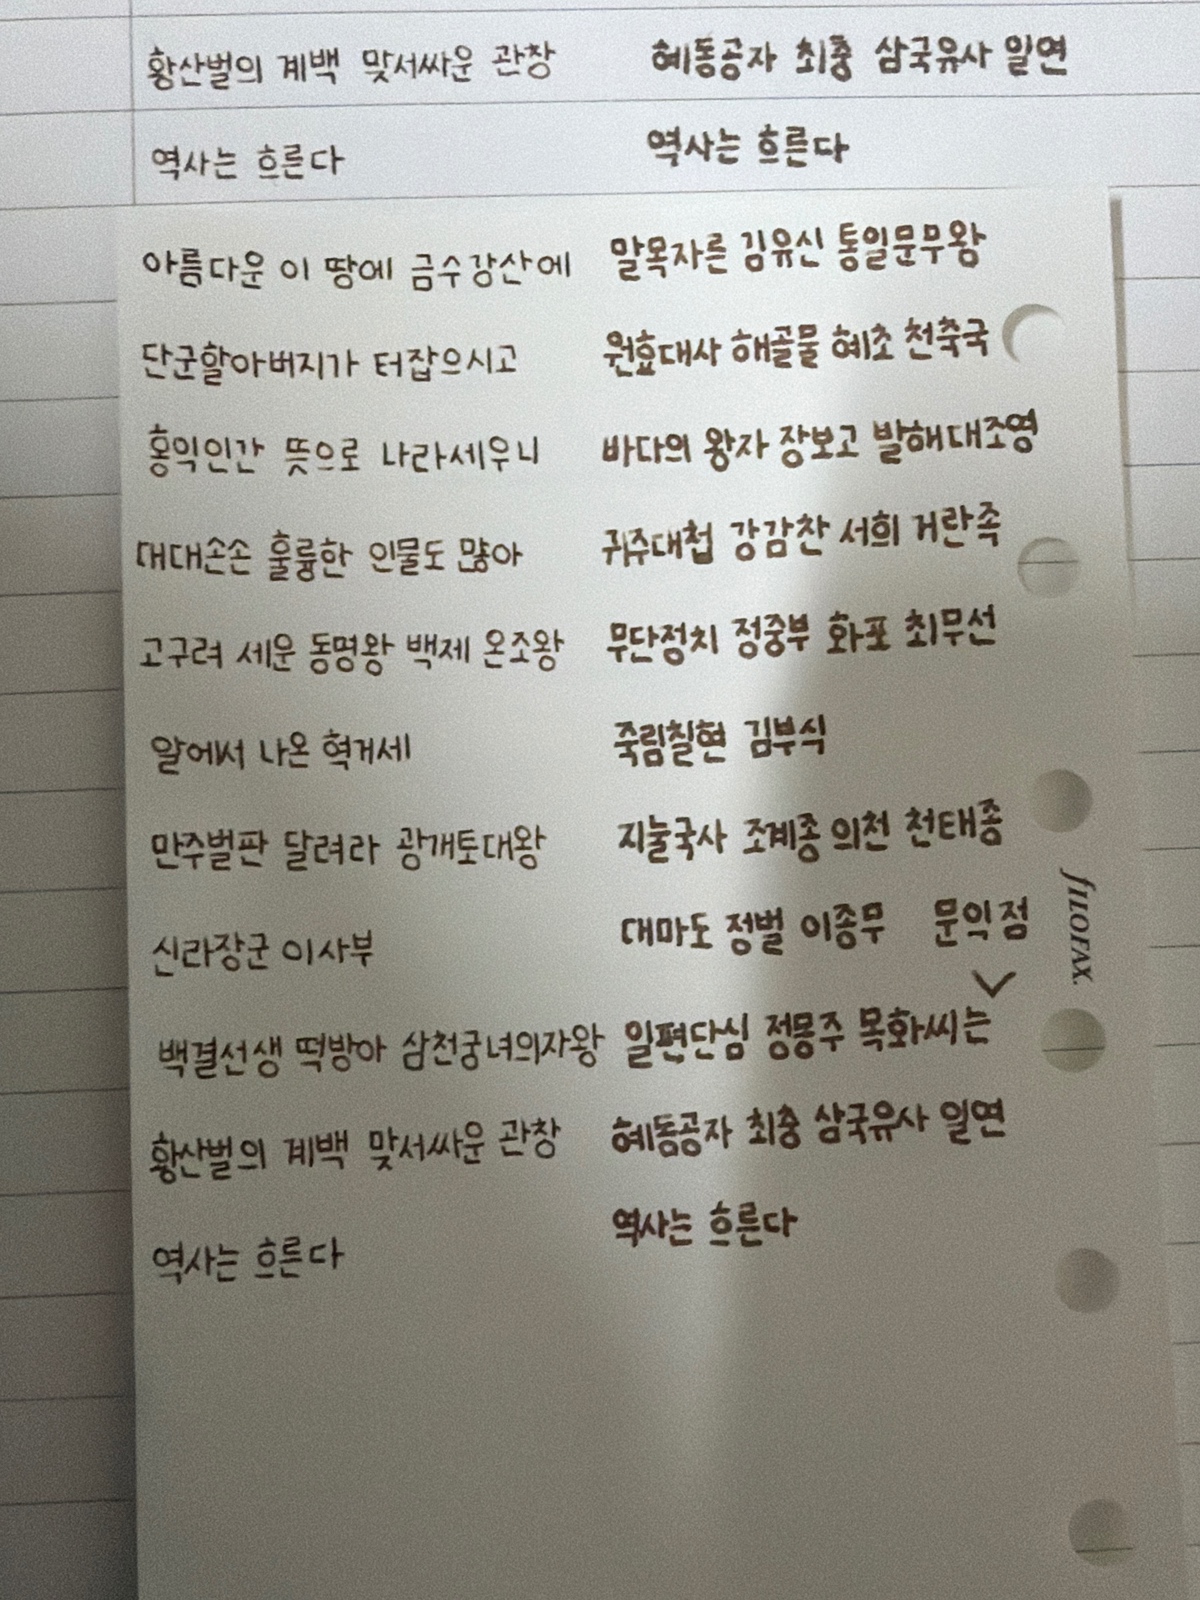 황산벌의 계백 맞서싸운 관창
역사는 흐른다
혜동공자 최충 삼국유사 일연
역사는 흐른다
아름다운 이 땅에 금수강산에
단군할아버지가 터잡으시고
홍익인간 뜻으로 나라세우니
대대손손 훌륭한 인물도 많아
고구려 세운 동명왕 백제 온조왕
알에서 나온 혁거세
만주벌판 달려라 광개토대왕
신라장군 이사부
백결선생 떡방아 삼천궁녀의자왕
황산벌의 계백 맞서싸운 관창
역사는 흐른다
말목자른 김유신 통일문무왕
원효대사 해골물 혜초 천축국
바다의 왕자 장보고 발해대조영
귀주대첩 강감찬 서희 거란족
무단정치 정중부 화포 최무선
죽림칠현 김부식
지눌국사 조계종 의천 천태종
대마도 정벌 이종무 문익점
일편단심 정몽주 목화씨는
혜동공자 최충 삼국유사 일연
역사는 흐른다
FILOFAX.